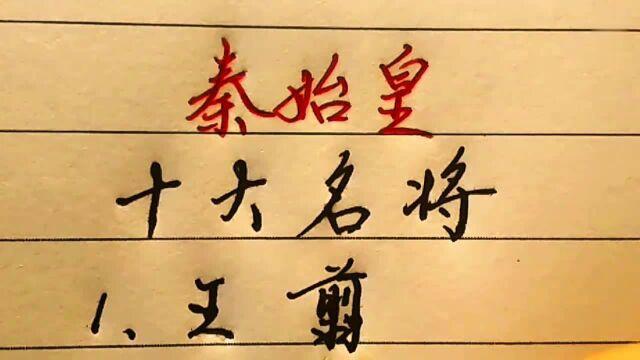 秦始皇
十大名将
1、王翦